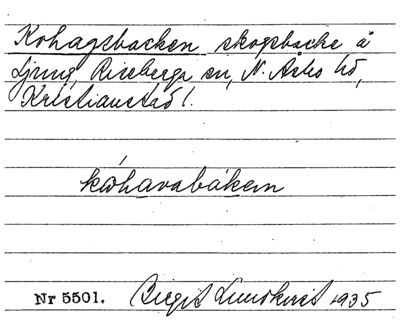 Kohagsbacken skogsbacke å
Ljung, Riseberga sn, N. Åsbo hd,
Kristianstad l.
kóhavabákem
Nr 5501. Birgit Lundkvist 1935